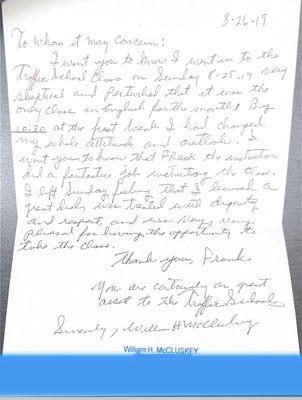 8-26-19
To Whom it may Concern:
I want you to know I went in to the
Traffic School Class on Sunday 8-25-19 very
skeptical and Perturbed that it was the
only class in English for the month! By
10:30 at the first break I had changed
my whole attitude and outlook. I
want you to know that Frank the instructor
did a fantastic job instructing the class.
I left Sunday feeling that I learned a
great deal, was treated with dignity
and respect, and was very, very
pleased for having the opportunity to
take the class.
Thank you, Frank
You are certainly an great
asset to the Traffic School
Sincerely, William H McCluskey
William H. McCLUSKEY